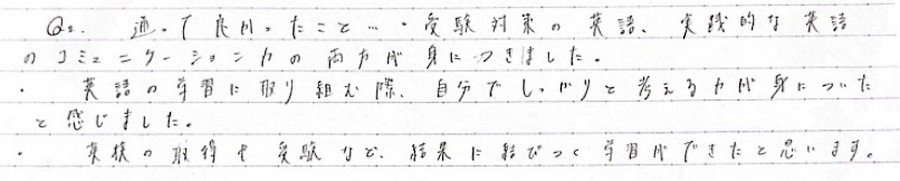 Q2. 通って良かったこと…・受験対策の英語、実践的な英語
のコミュニケーション力の両方が身につきました。
・ 英語の学習に取り組む際、自分でしっかりと考える力が身についた
と感じました。
・ 英検の取得や受験など、結果に結びつく学習ができたと思います。